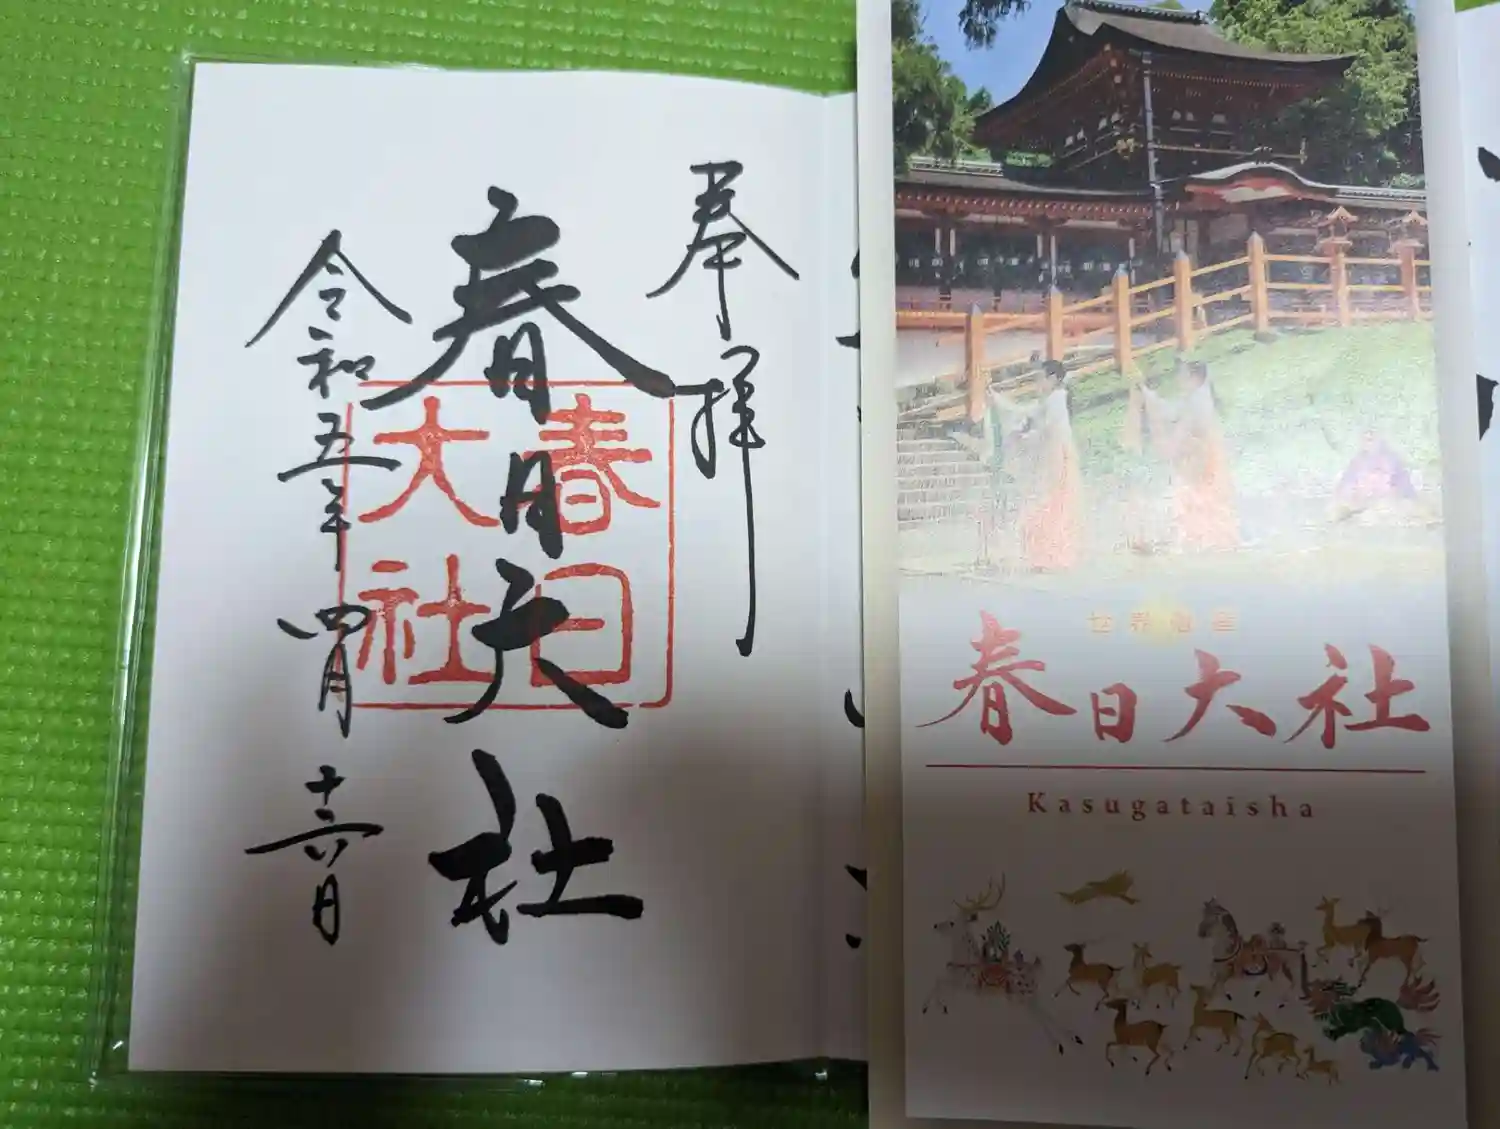 奉拝
春日大社
春日
大社
令和五年四月十六日
世界遺産
春日大社
Kasugataisha